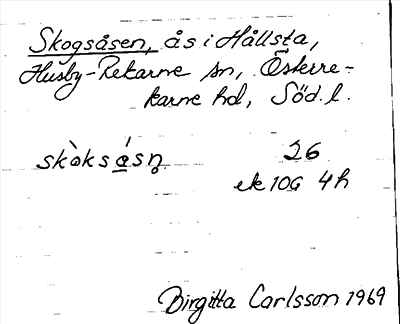 Skogsåsen, ås i Hållsta,
Husby-Rekarne sn, Österre-
karne hd, Söd. l.
skò̀ksásn̥ 26
ek 10G 4h
Birgitta Carlsson 1969